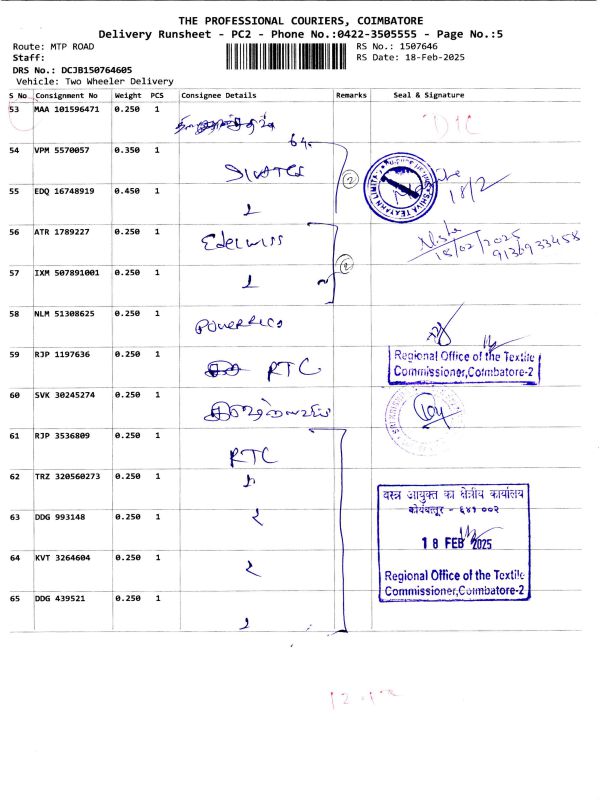 THE PROFESSIONAL COURIERS, COIMBATORE
Delivery Runsheet - PC2 - Phone No.:0422-3505555 - Page No.:5
Route: MTP ROAD
RS No.: 1507646
Staff:
RS Date: 18-Feb-2025
DRS No.: DCJB150764605
Vehicle: Two Wheeler Delivery
S No Consignment No Weight PCS Consignee Details Remarks Seal & Signature
53 MAA 101596471 0.250 1
64
54 VPM 5570057 0.350 1
2
18/2
55 EDQ 16748919 0.450 1
56 ATR 1789227 0.250 1 Edelwiss
18/02/2025
9136933458
57 IXM 507891001 0.250 1
2
58 NLM 51308625 0.250 1
59 RJP 1197636 0.250 1 RTC
Regional Office of the Textile
Commissioner,Coimbatore-2
60 SVK 30245274 0.250 1
61 RJP 3536809 0.250 1 RTC
62 TRZ 320560273 0.250 1
वस्त्र आयुक्त का क्षेत्रीय कार्यालय
कोयंबत्तूर - ६४१ ००२
63 DDG 993148 0.250 1
18 FEB 2025
64 KVT 3264604 0.250 1
Regional Office of the Textile
Commissioner,Coimbatore-2
65 DDG 439521 0.250 1